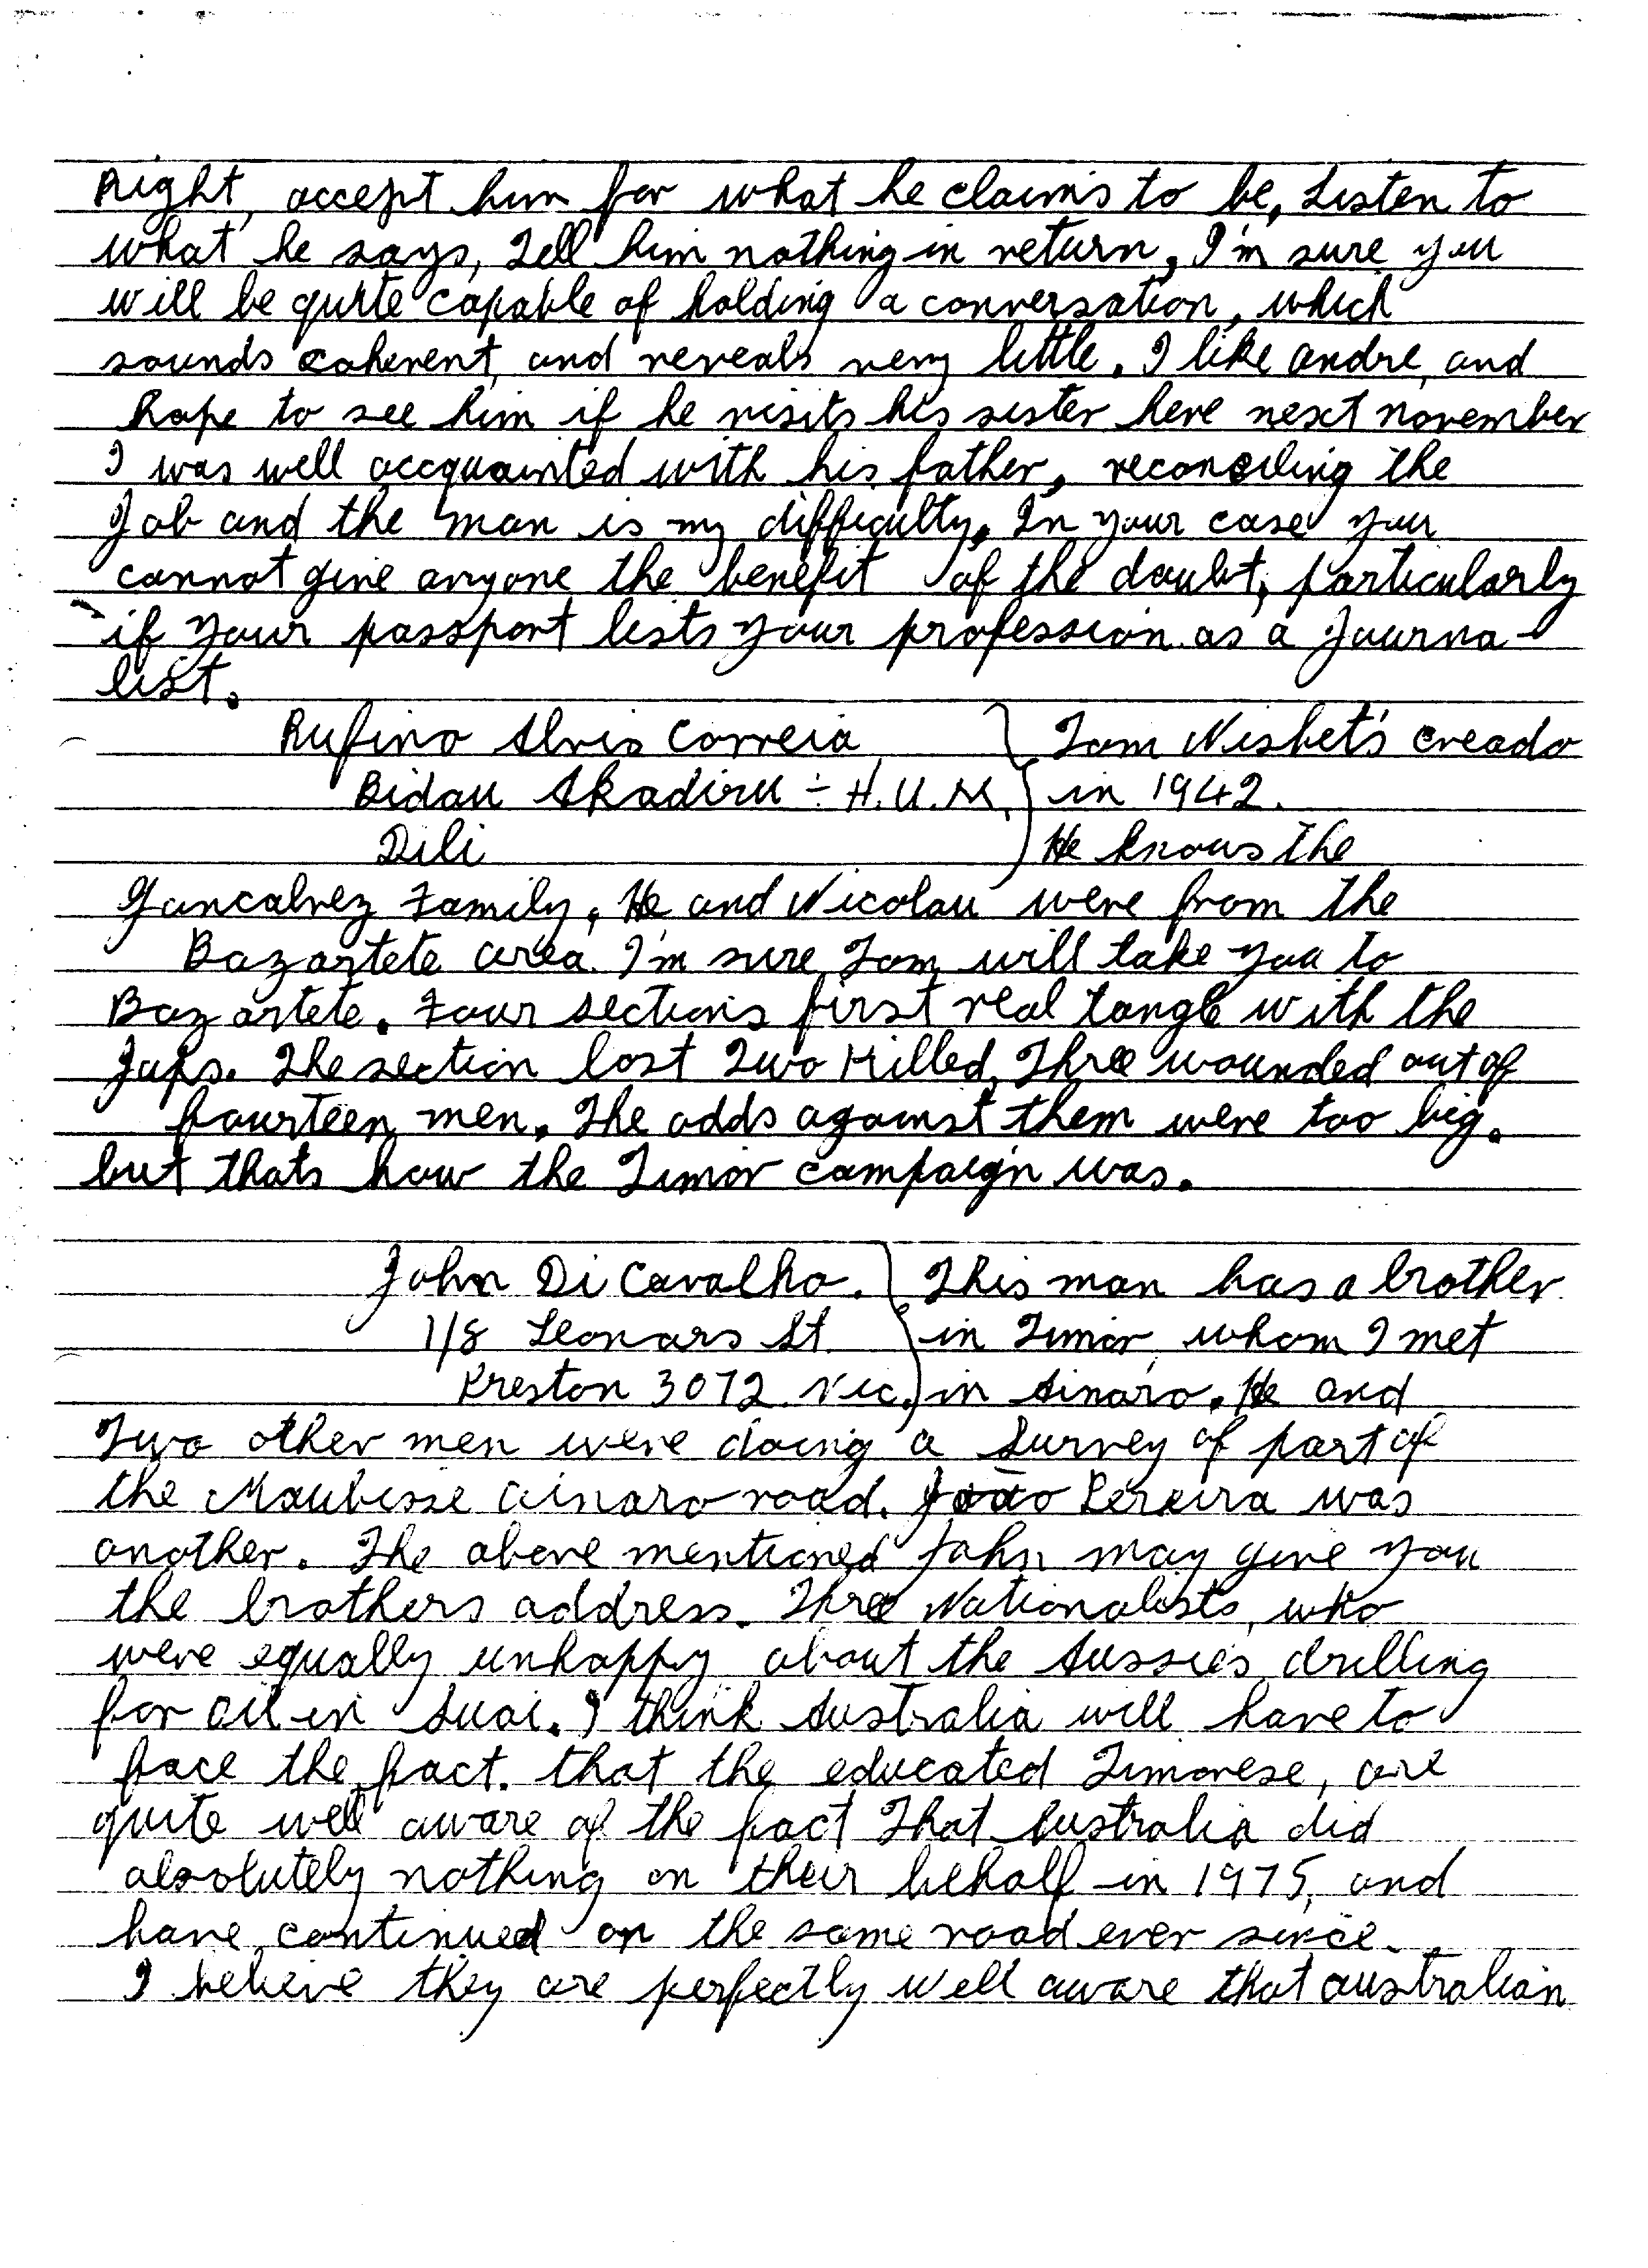 Right, accept him for what he claims to be, Listen to
what he says, Tell him nothing in return, I'm sure you
will be quite capable of holding a conversation, which
sounds coherent, and reveals very little. I like Andre, and
hope to see him if he visits his sister here next November
I was well accquainted with his father, reconciling the
Job and the man is my difficulty, In your case you
cannot give anyone the benefit of the doubt, particularly
if your passport lists your profession as a Journa-
list.
Rufino Alvis Correia } Tom Nisbet's creado
Bidau Akadiru ÷ H.U.M. } in 1942.
Dili } He knows the
Goncalvez Family, He and Nicolau were from the
Bazartete area. I'm sure Tom will take you to
Bazartete. Four sections first real tangle with the
Japs. The section lost Two Killed, Three wounded out of
fourteen men. The odds against them were too big.
but thats how the Timor campaign was.
John Di Cavalho. } This man has a brother
1/8 Leonars St. } in Timor, whom I met
Preston 3072 Vic. } in Ainaro. He and
Two other men were doing a Survey of part of
the Maubisse Ainaro road. João Pereira was
another. The above mentioned John may give you
the brothers address. Three Nationalists, who
were equally unhappy about the Aussies drilling
for oil in Suai. I think Australia will have to
face the fact. that the educated Timorese, are
quite well aware of the fact That Australia did
absolutely nothing on their behalf in 1975, and
have continued on the same road ever since.
I believe they are perfectly well aware that australian